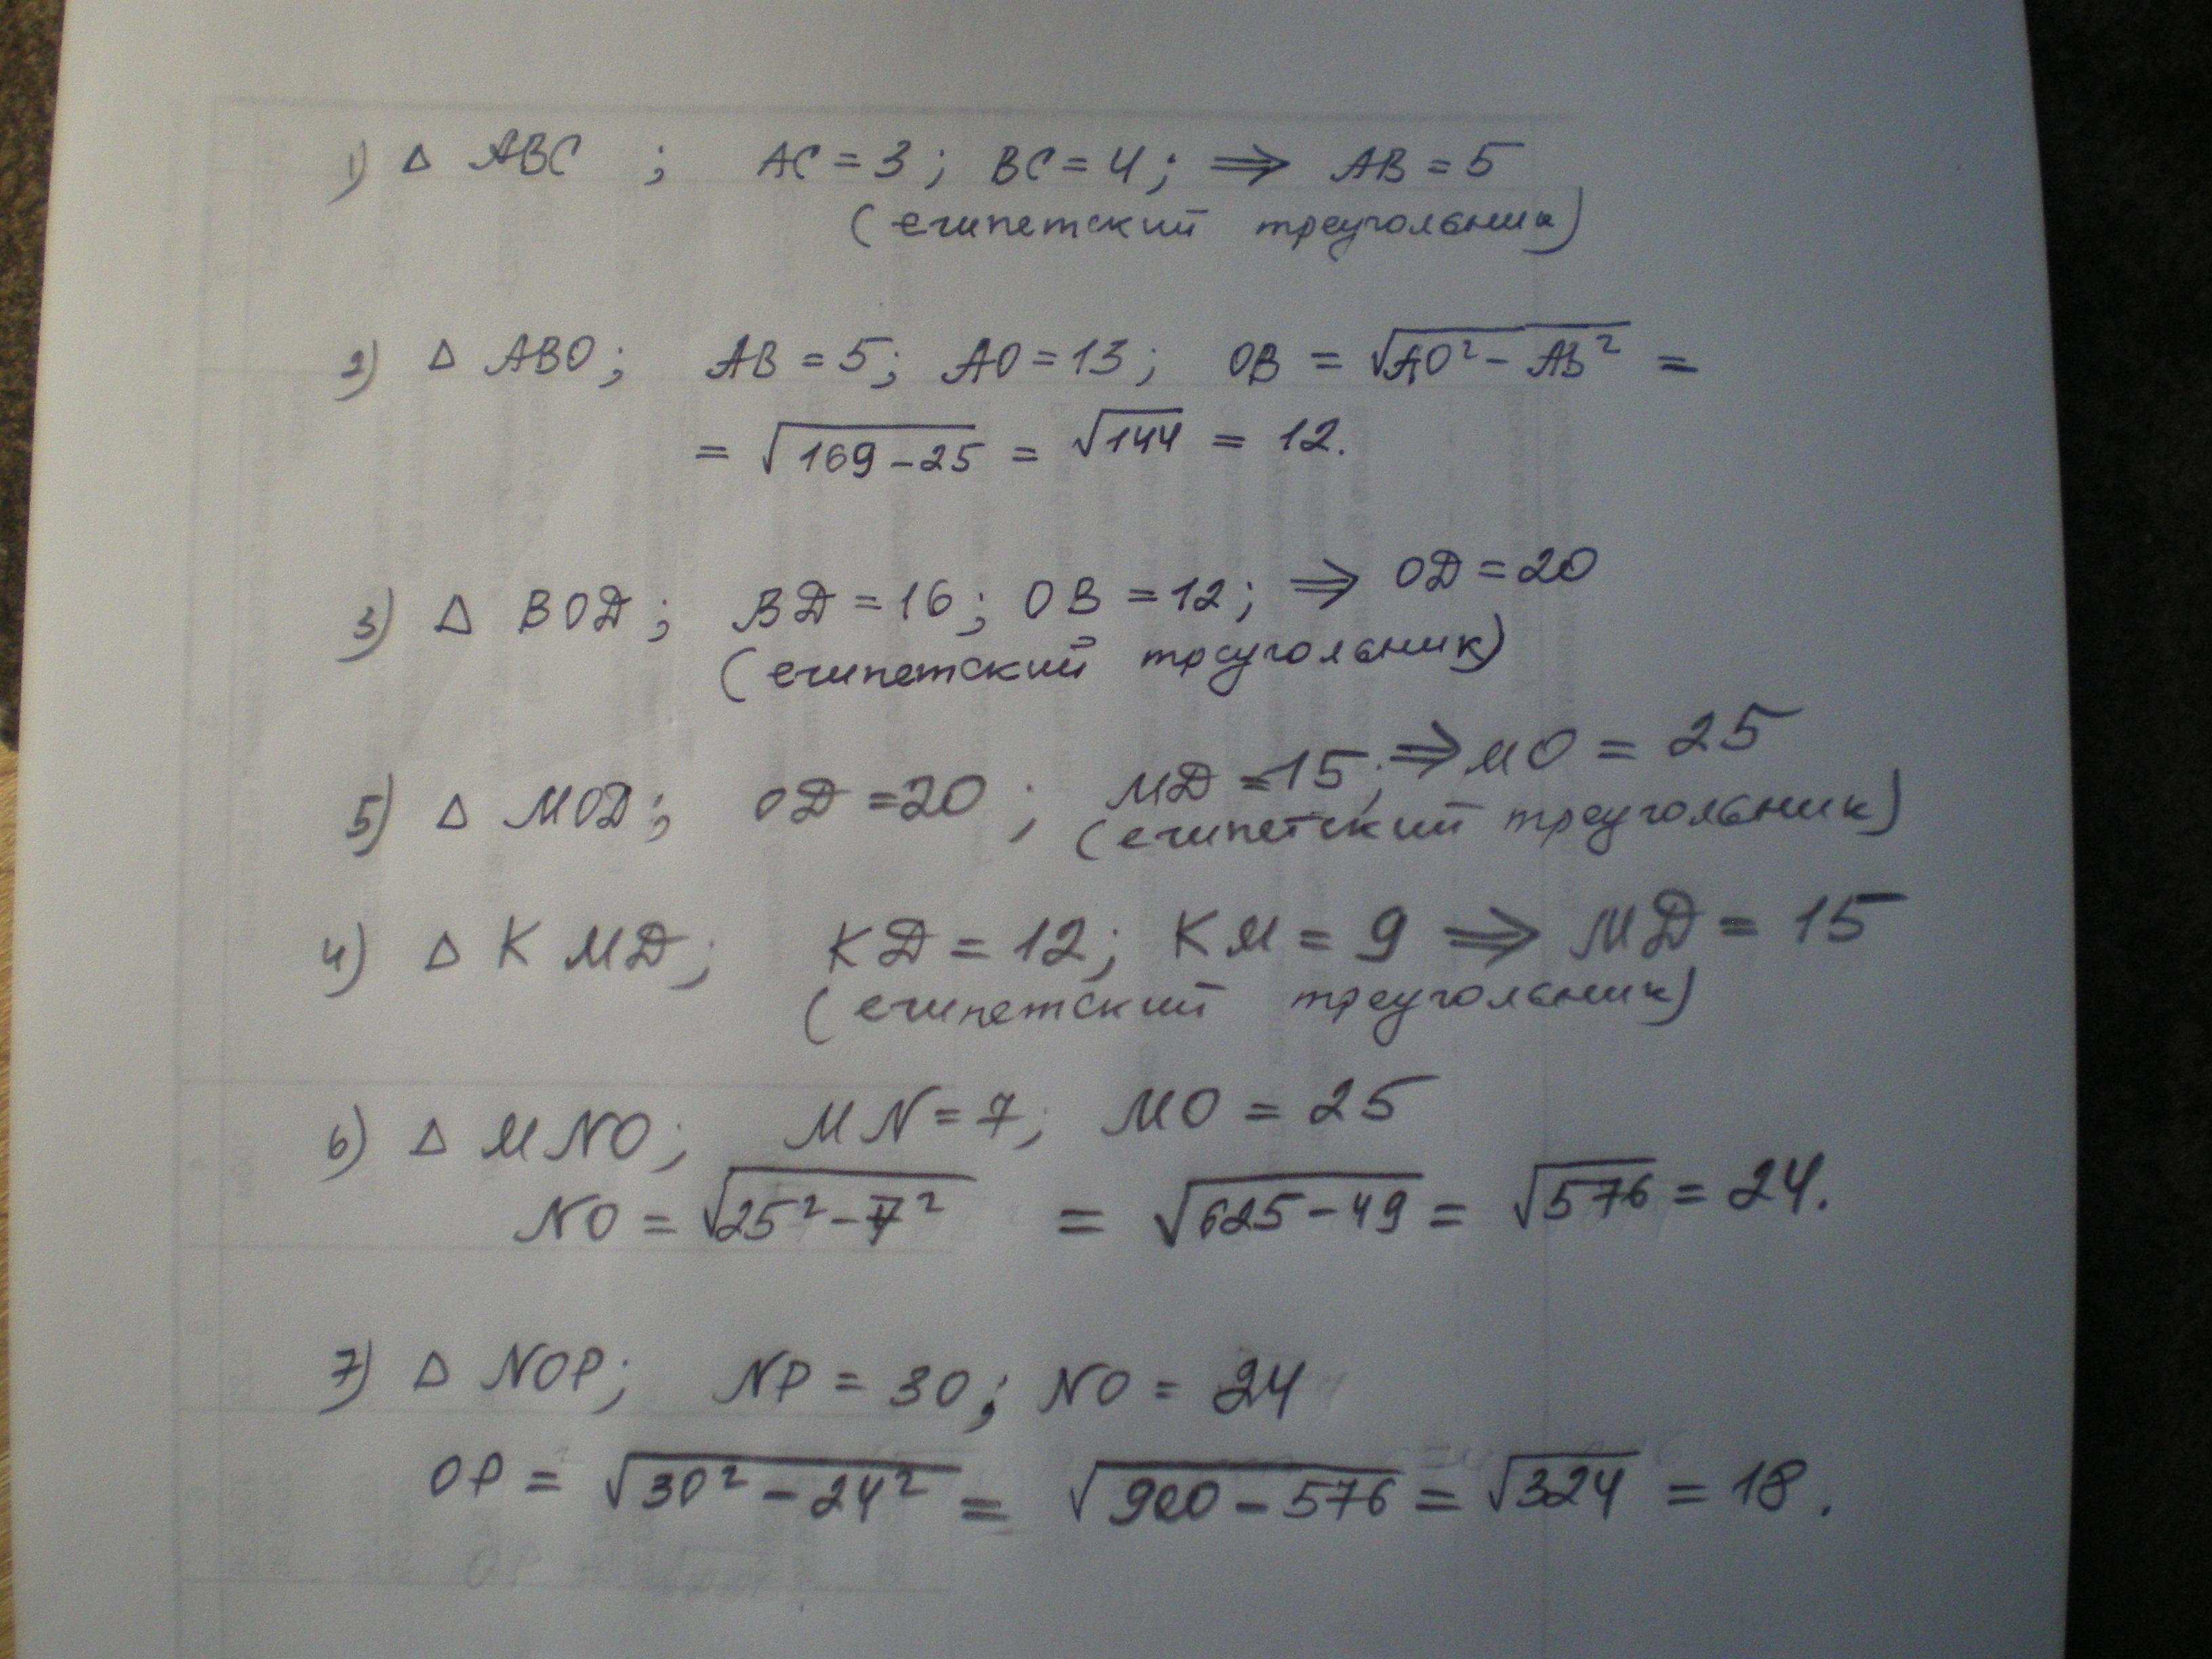 1) Δ ABC ; AC = 3 ; BC = 4 ; ⇒ AB = 5
(египетский треугольник)
2) Δ ABO ; AB = 5 ; AO = 13 ; OB = √AO² - AB² =
= √169 - 25 = √144 = 12.
3) Δ BOD ; BD = 16 ; OB = 12 ; ⇒ OD = 20
(египетский треугольник)
5) Δ MOD ; OD = 20 ; MD = 15 ; ⇒ MO = 25
(египетский треугольник)
4) Δ KMD ; KD = 12 ; KM = 9 ⇒ MD = 15
(египетский треугольник)
6) Δ MNO ; MN = 7 ; MO = 25
NO = √25² - 7² = √625 - 49 = √576 = 24.
7) Δ NOP ; NP = 30 ; NO = 24
OP = √30² - 24² = √900 - 576 = √324 = 18.